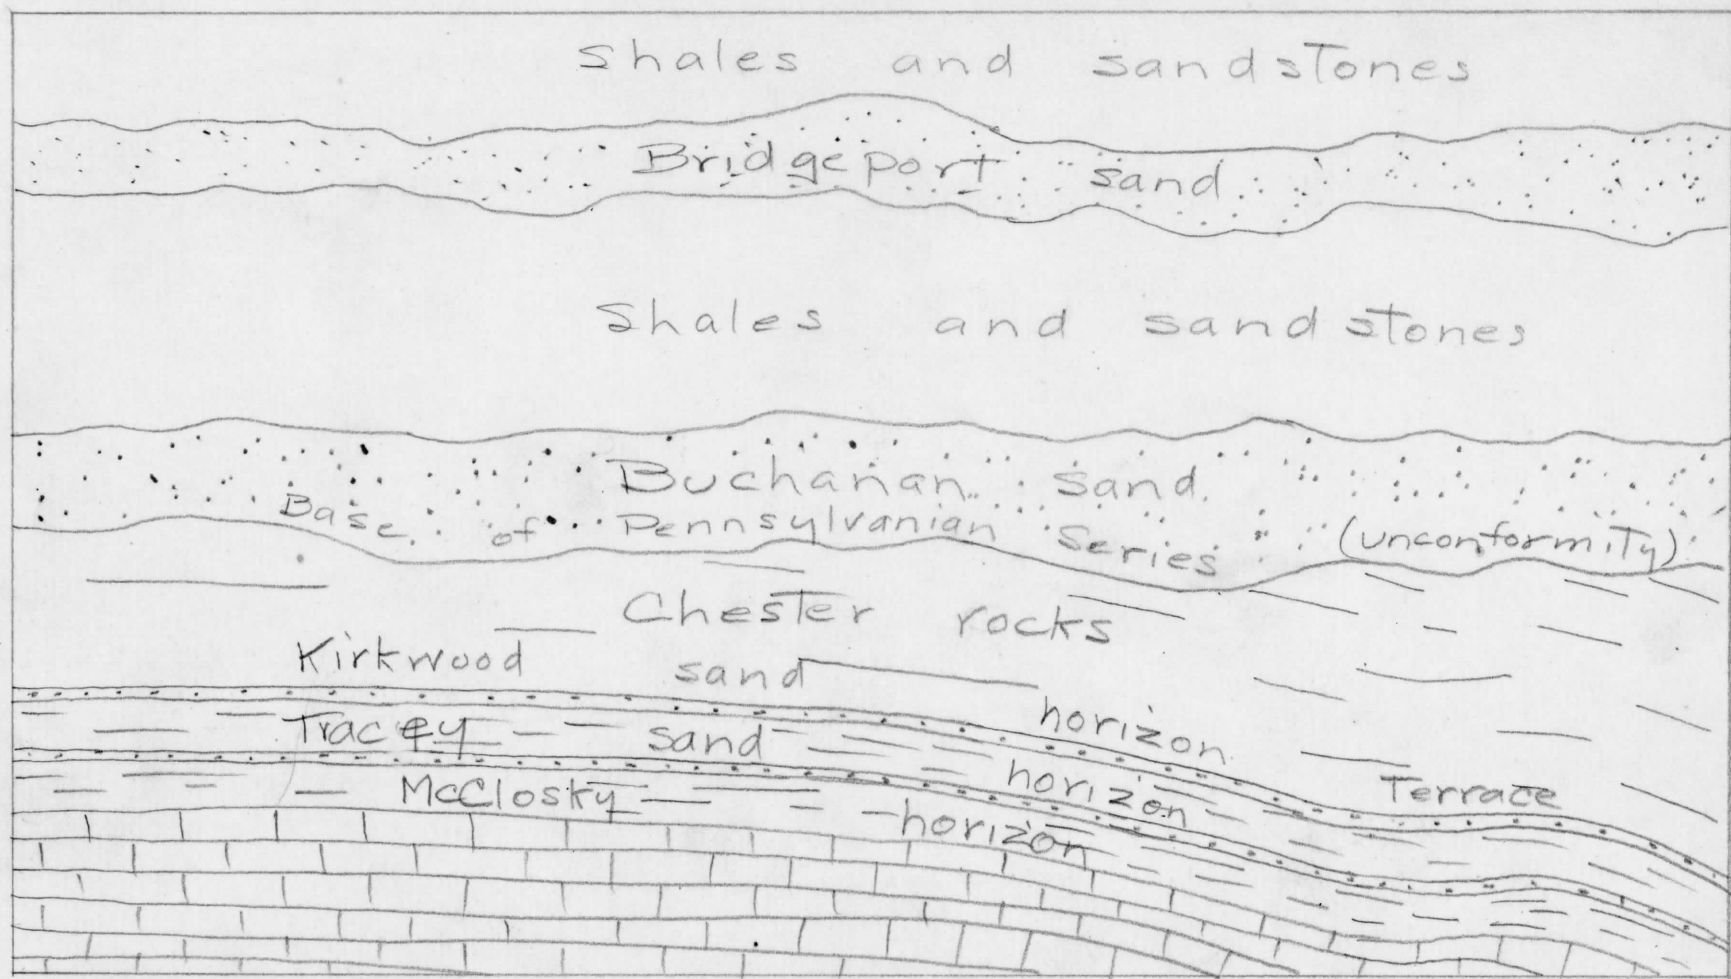 Shales and sandstones
Bridgeport sand
Shales and sandstones
Buchanan sand
Base of Pennsylvanian Series (unconformity)
Chester rocks
Kirkwood sand horizon
Tracey sand horizon
McClosky horizon
Terrace